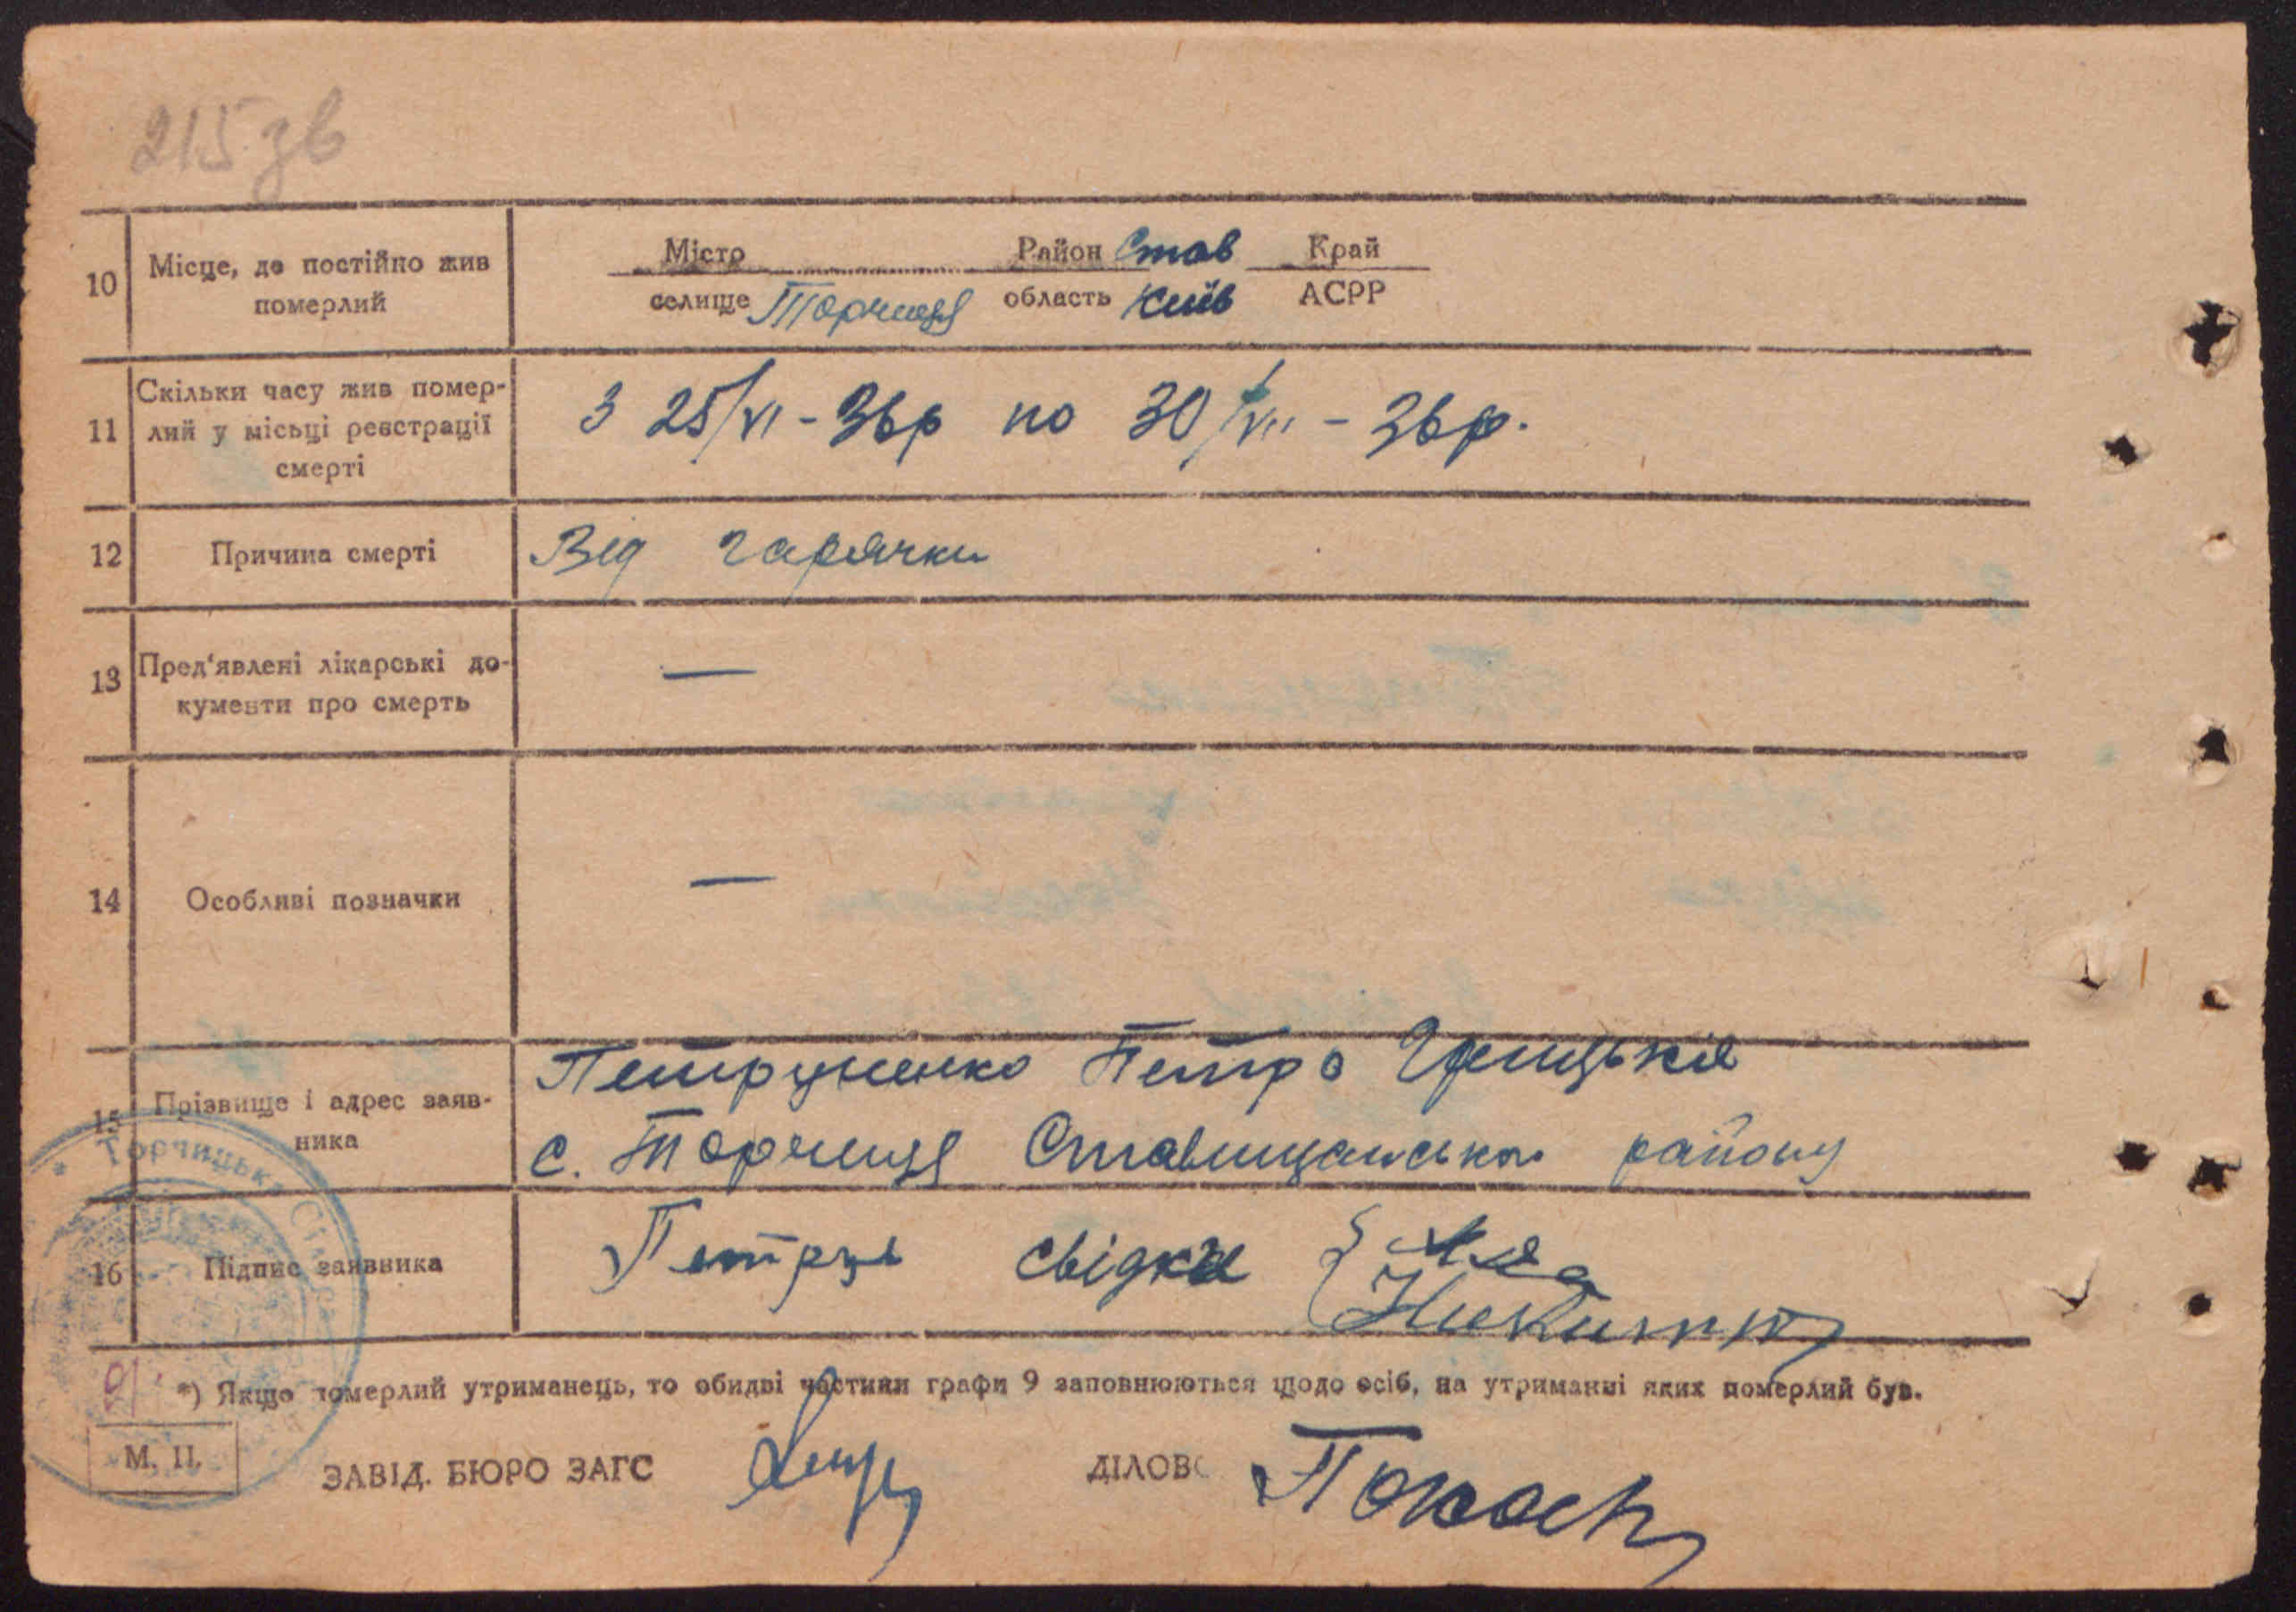 215 зв
10 Місце, де постійно жив померлий
Місто Район Став Край
селище Торчиця область Київ АСРР
11 Скільки часу жив помер-
лий у місьці реєстрації
смерті
З 25/VI - 36р по 30/VII - 36р.
12 Причина смерті Від гарячки
13 Пред'явлені лікарські до-
кументи про смерть —
14 Особливі позначки —
15 Прізвище і адрес заяв-
ника
Петруненко Петро Грицьків
с. Торчиця Ставищанськ. району
16 Підпис заявника Петру свідки
Торчицьк Сільра
*) Якщо померлий утриманець, то обидві частини графи 9 заповнюються щодо осіб, на утриманні яких померлий був.
М. П. ЗАВІД. БЮРО ЗАГС ДІЛОВ